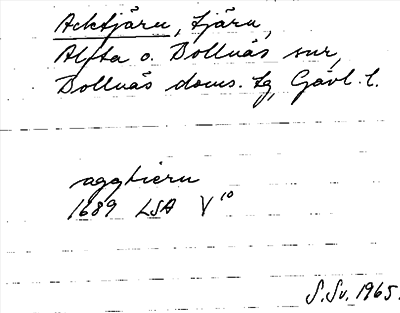 Acktjärn, tjärn,
Alfta o. Bollnäs snr,
Bollnäs doms. tg, Gävl. l.
aggtiern
1689 LSA V¹⁰
S. Sv. 1965.